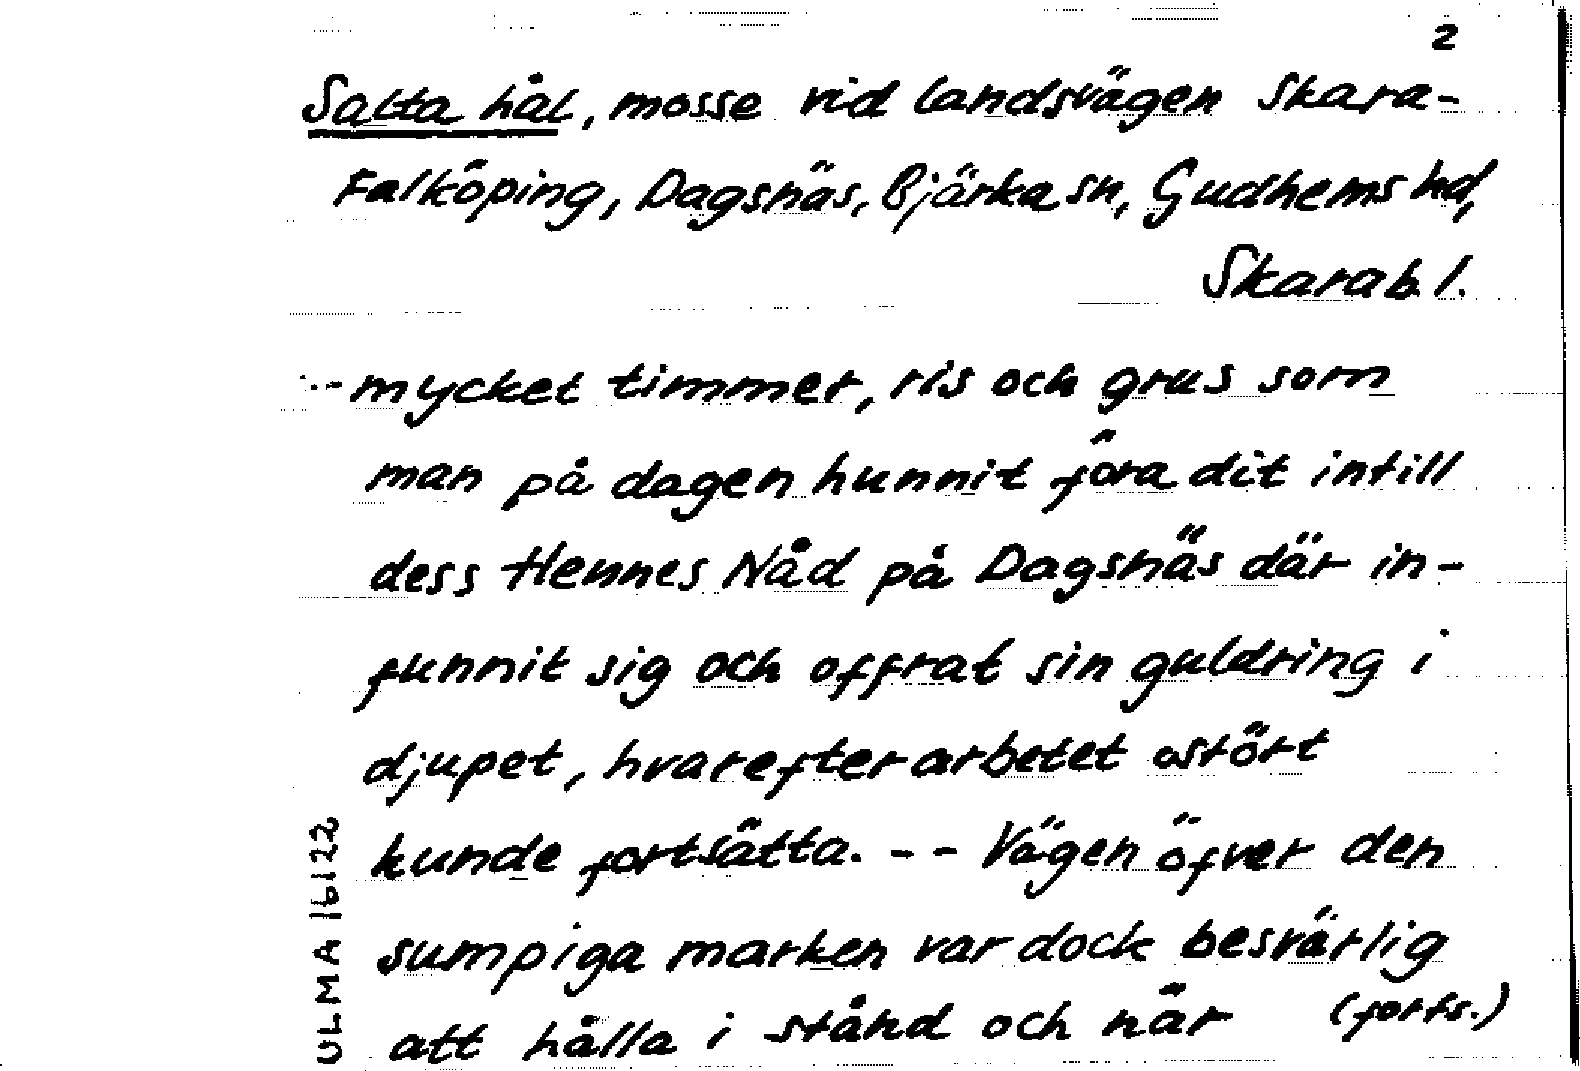 2
Salta hål, mosse vid landsvägen Skara-
Falköping, Dagsnäs, Bjärka sn, Gudhems hd,
Skarab. l.
--- mycket timmer, ris och grus som
man på dagen hunnit föra dit intill
dess Hennes Nåd på Dagsnäs där in-
funnit sig och offrat sin guldring i
djupet, hvarefter arbetet ostört
kunde fortsätta. - - Vägen öfver den
sumpiga marken var dock besvärlig
att hålla i stånd och när (forts.)
ULMA 16122